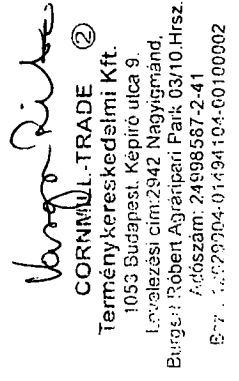 Varga Rita
CORNMILL-TRADE ②
Terménykereskedelmi Kft.
1053 Budapest, Képíró utca 9.
Levelezési cím:2942 Nagyigmánd,
Burgert Róbert Agráripari Park 03/10.Hrsz.
Adószám: 24998587-2-41
01494104-00100002